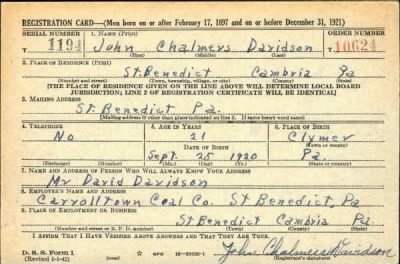 REGISTRATION CARD—(Men born on or after February 17, 1897 and on or before December 31, 1921)
SERIAL NUMBER 1. NAME (Print) ORDER NUMBER
1194 John Chalmers Davidson 10624
(First) (Middle) (Last)
2. PLACE OF RESIDENCE (Print)
St. Benedict Cambria Pa
(Number and street) (Town, township, village, or city) (County) (State)
[THE PLACE OF RESIDENCE GIVEN ON THE LINE ABOVE WILL DETERMINE LOCAL BOARD
JURISDICTION; LINE 2 OF REGISTRATION CERTIFICATE WILL BE IDENTICAL]
3. MAILING ADDRESS
St. Benedict Pa.
[Mailing address if other than place indicated on line 2. If same insert word same]
4. TELEPHONE 5. AGE IN YEARS 6. PLACE OF BIRTH
No 21 Clymer
DATE OF BIRTH (Town or county)
Sept. 25 1920 Pa.
(Exchange) (Number) (Mo.) (Day) (Yr.) (State or country)
7. NAME AND ADDRESS OF PERSON WHO WILL ALWAYS KNOW YOUR ADDRESS
Mr David Davidson
8. EMPLOYER'S NAME AND ADDRESS
Carrolltown Coal Co. St Benedict, Pa
9. PLACE OF EMPLOYMENT OR BUSINESS
St Benedict Cambria Pa.
(Number and street or R. F. D. number) (Town) (County) (State)
I AFFIRM THAT I HAVE VERIFIED ABOVE ANSWERS AND THAT THEY ARE TRUE.
D. S. S. Form 1
(Revised 1-1-42) GPO 16-21630-1 John Chalmers Davidson